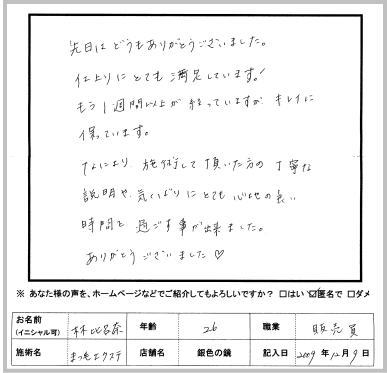 先日は どうもありがとうございました。
仕上りにとても満足しています!
もう1週間以上が経っていますが キレイに
保っています。
なにより 施術して頂いた方の 丁寧な
説明や、気くばりにとても心地の良い
時間を 過ごす事が出来ました。
ありがとう ございました♡
※ あなた様の声を、ホームページなどでご紹介してもよろしいですか? □はい ☑匿名で □ダメ
お名前 年齢 26 職業 販売員
(イニシャル可)
施術名 まつ毛エクステ 店舗名 銀色の鏡 記入日 2009年12月9日